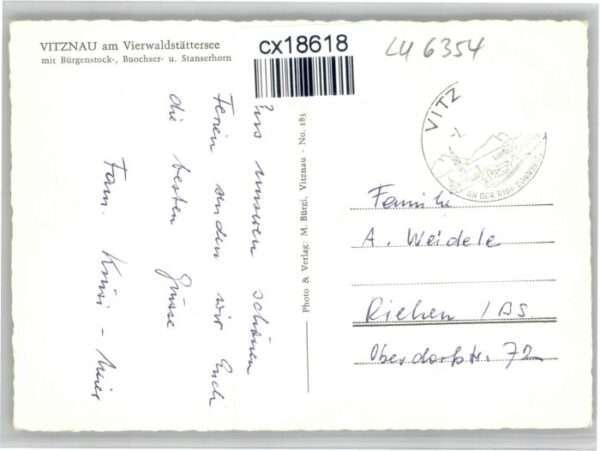 VITZNAU am Vierwaldstättersee
mit Bürgenstock-, Buochser- u. Stanserhorn
cx18618
LU 6354
VITZ
AN DER RIGI-SONNENSEITE
Aus unseren schönen
Ferien senden wir Euch
die besten Grüsse
Fam. Künsi - Meier
Photo & Verlag: M. Bürgi, Vitznau - No. 183
Familie
A. Weidele
Riehen / BS
Oberdorfstr. 72